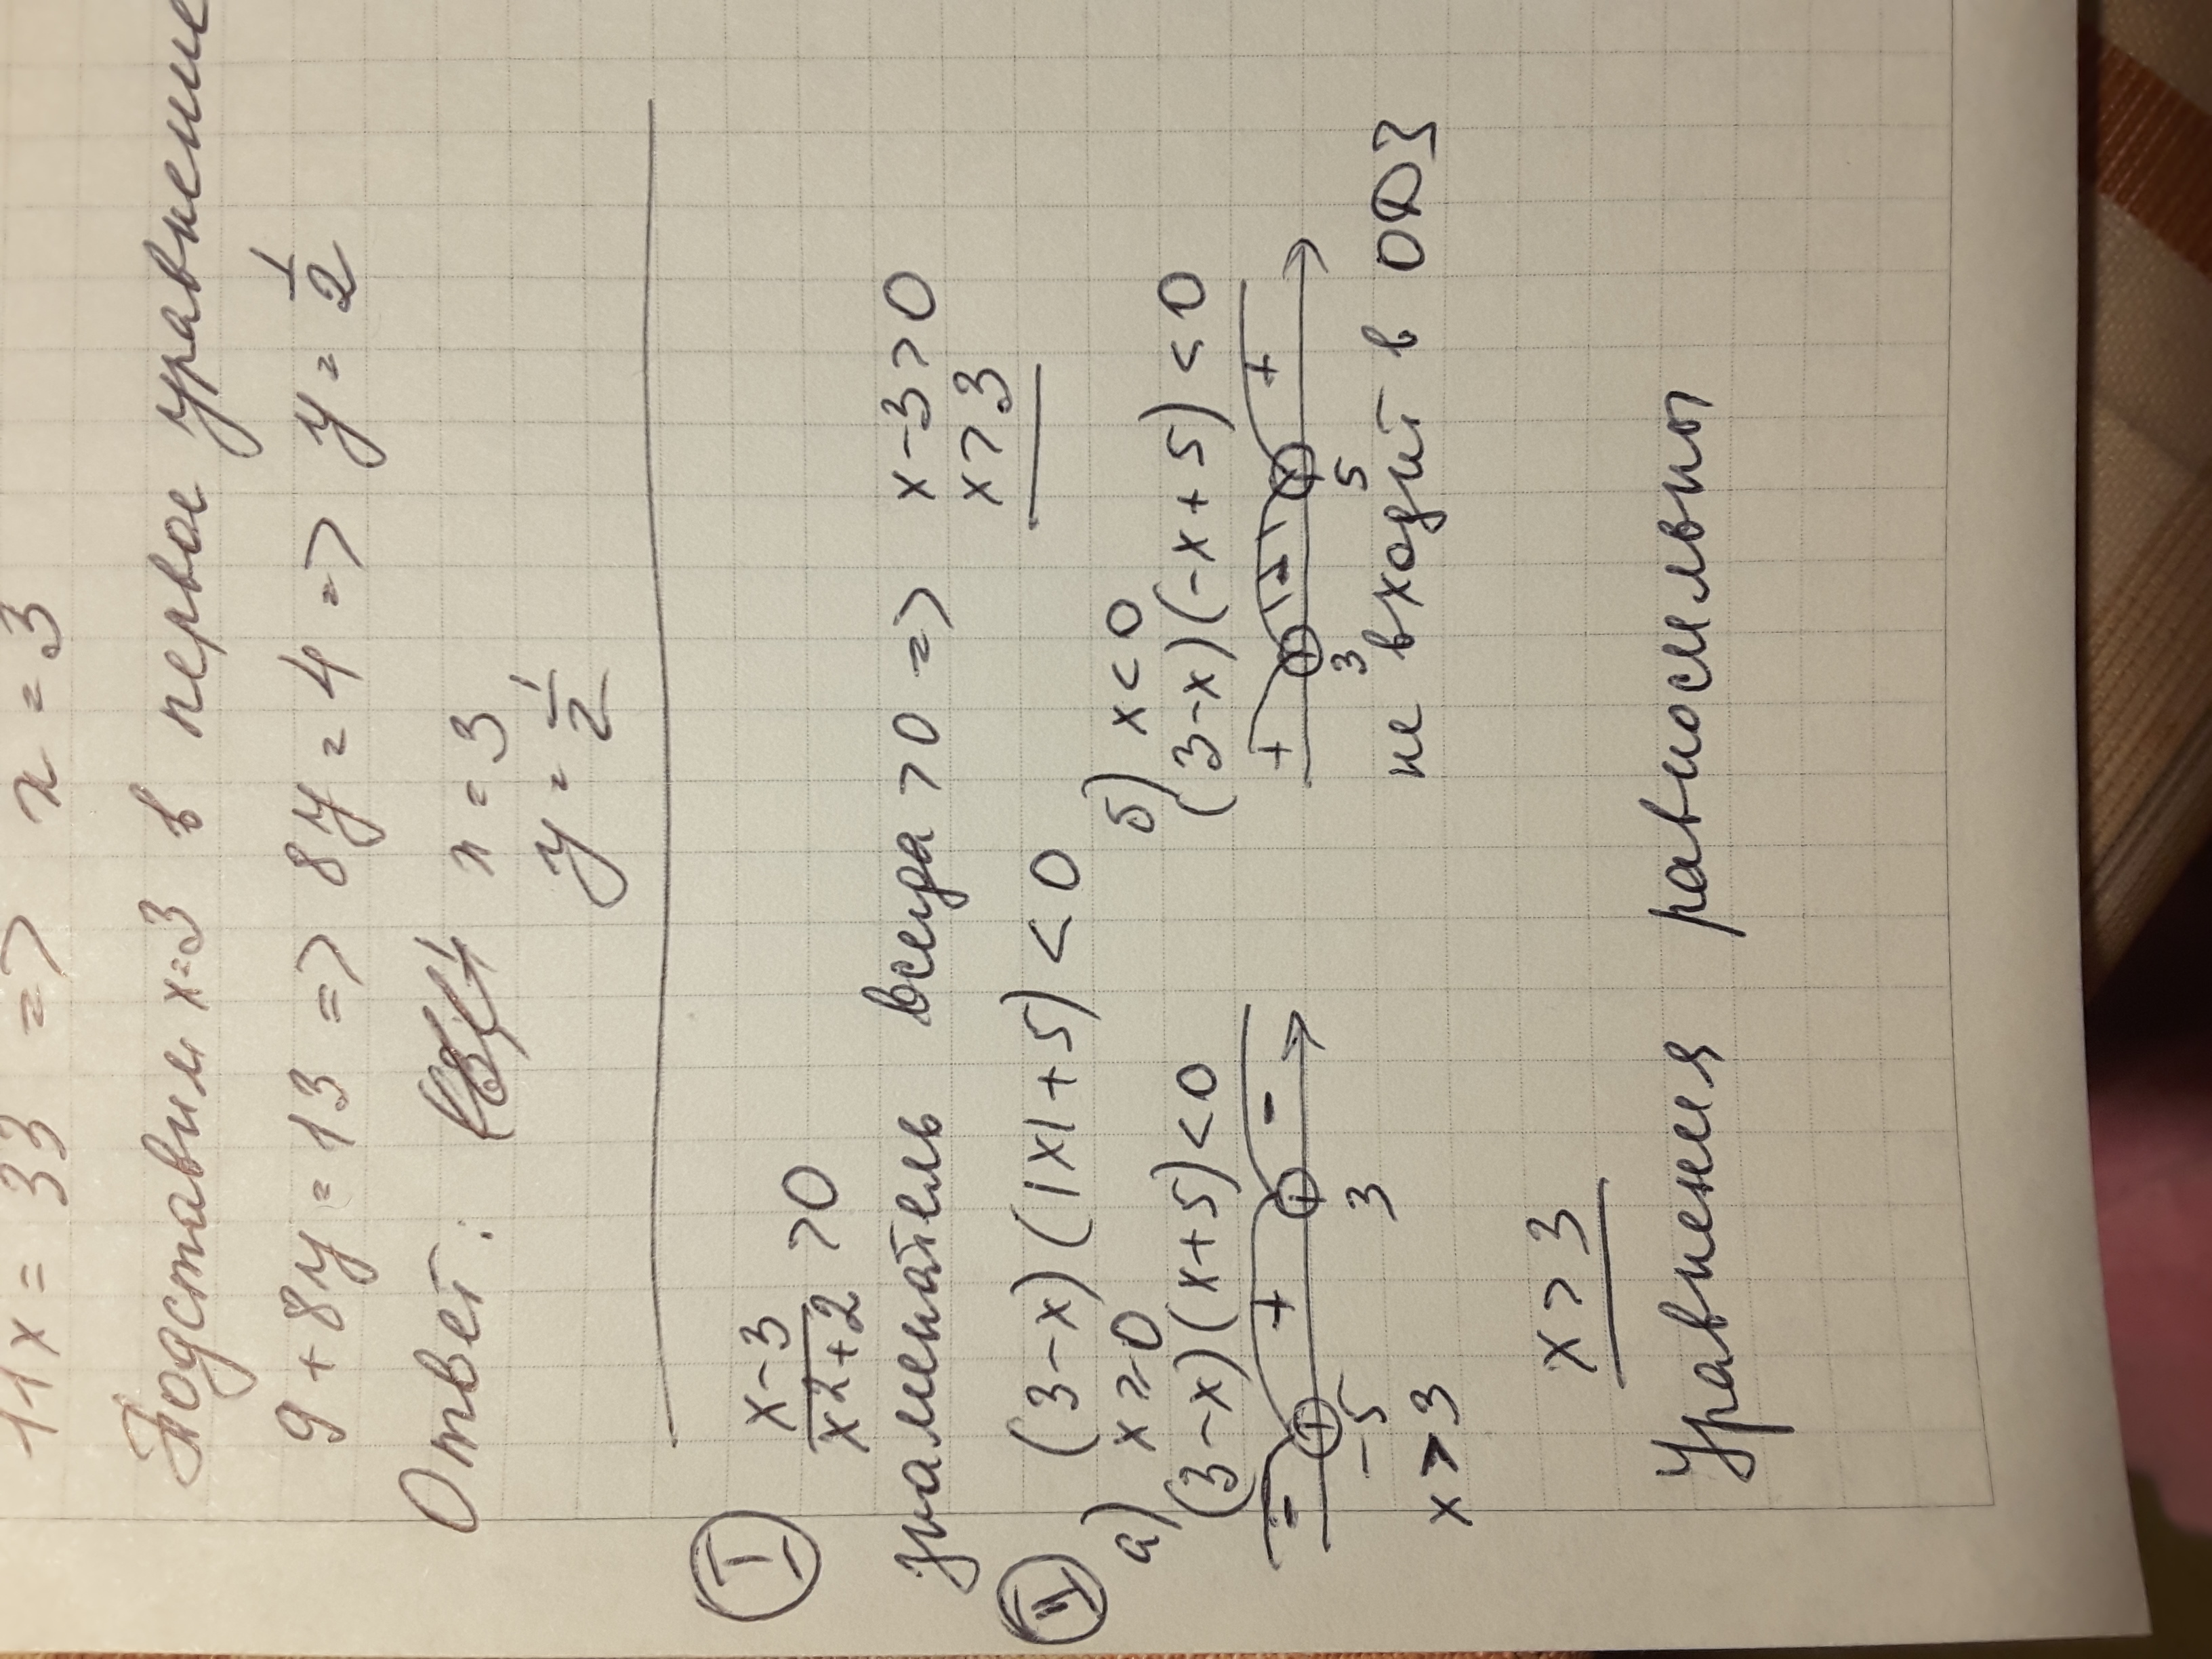 11x = 33 => x = 3
Подставим x=3 в первое уравнение
9 + 8y = 13 => 8y = 4 => y = 1/2
Ответ: x = 3
y = 1/2
I x-3/x²+2 > 0
знаменатель всегда > 0 => x-3 > 0
x > 3
II (3-x)(|x|+5) < 0
а) x ≥ 0
(3-x)(x+5) < 0
- + -
-5 3
x > 3
б) x < 0
(3-x)(-x+5) < 0
+ - +
3 5
не входит в ОДЗ
x > 3
Уравнения равносильны